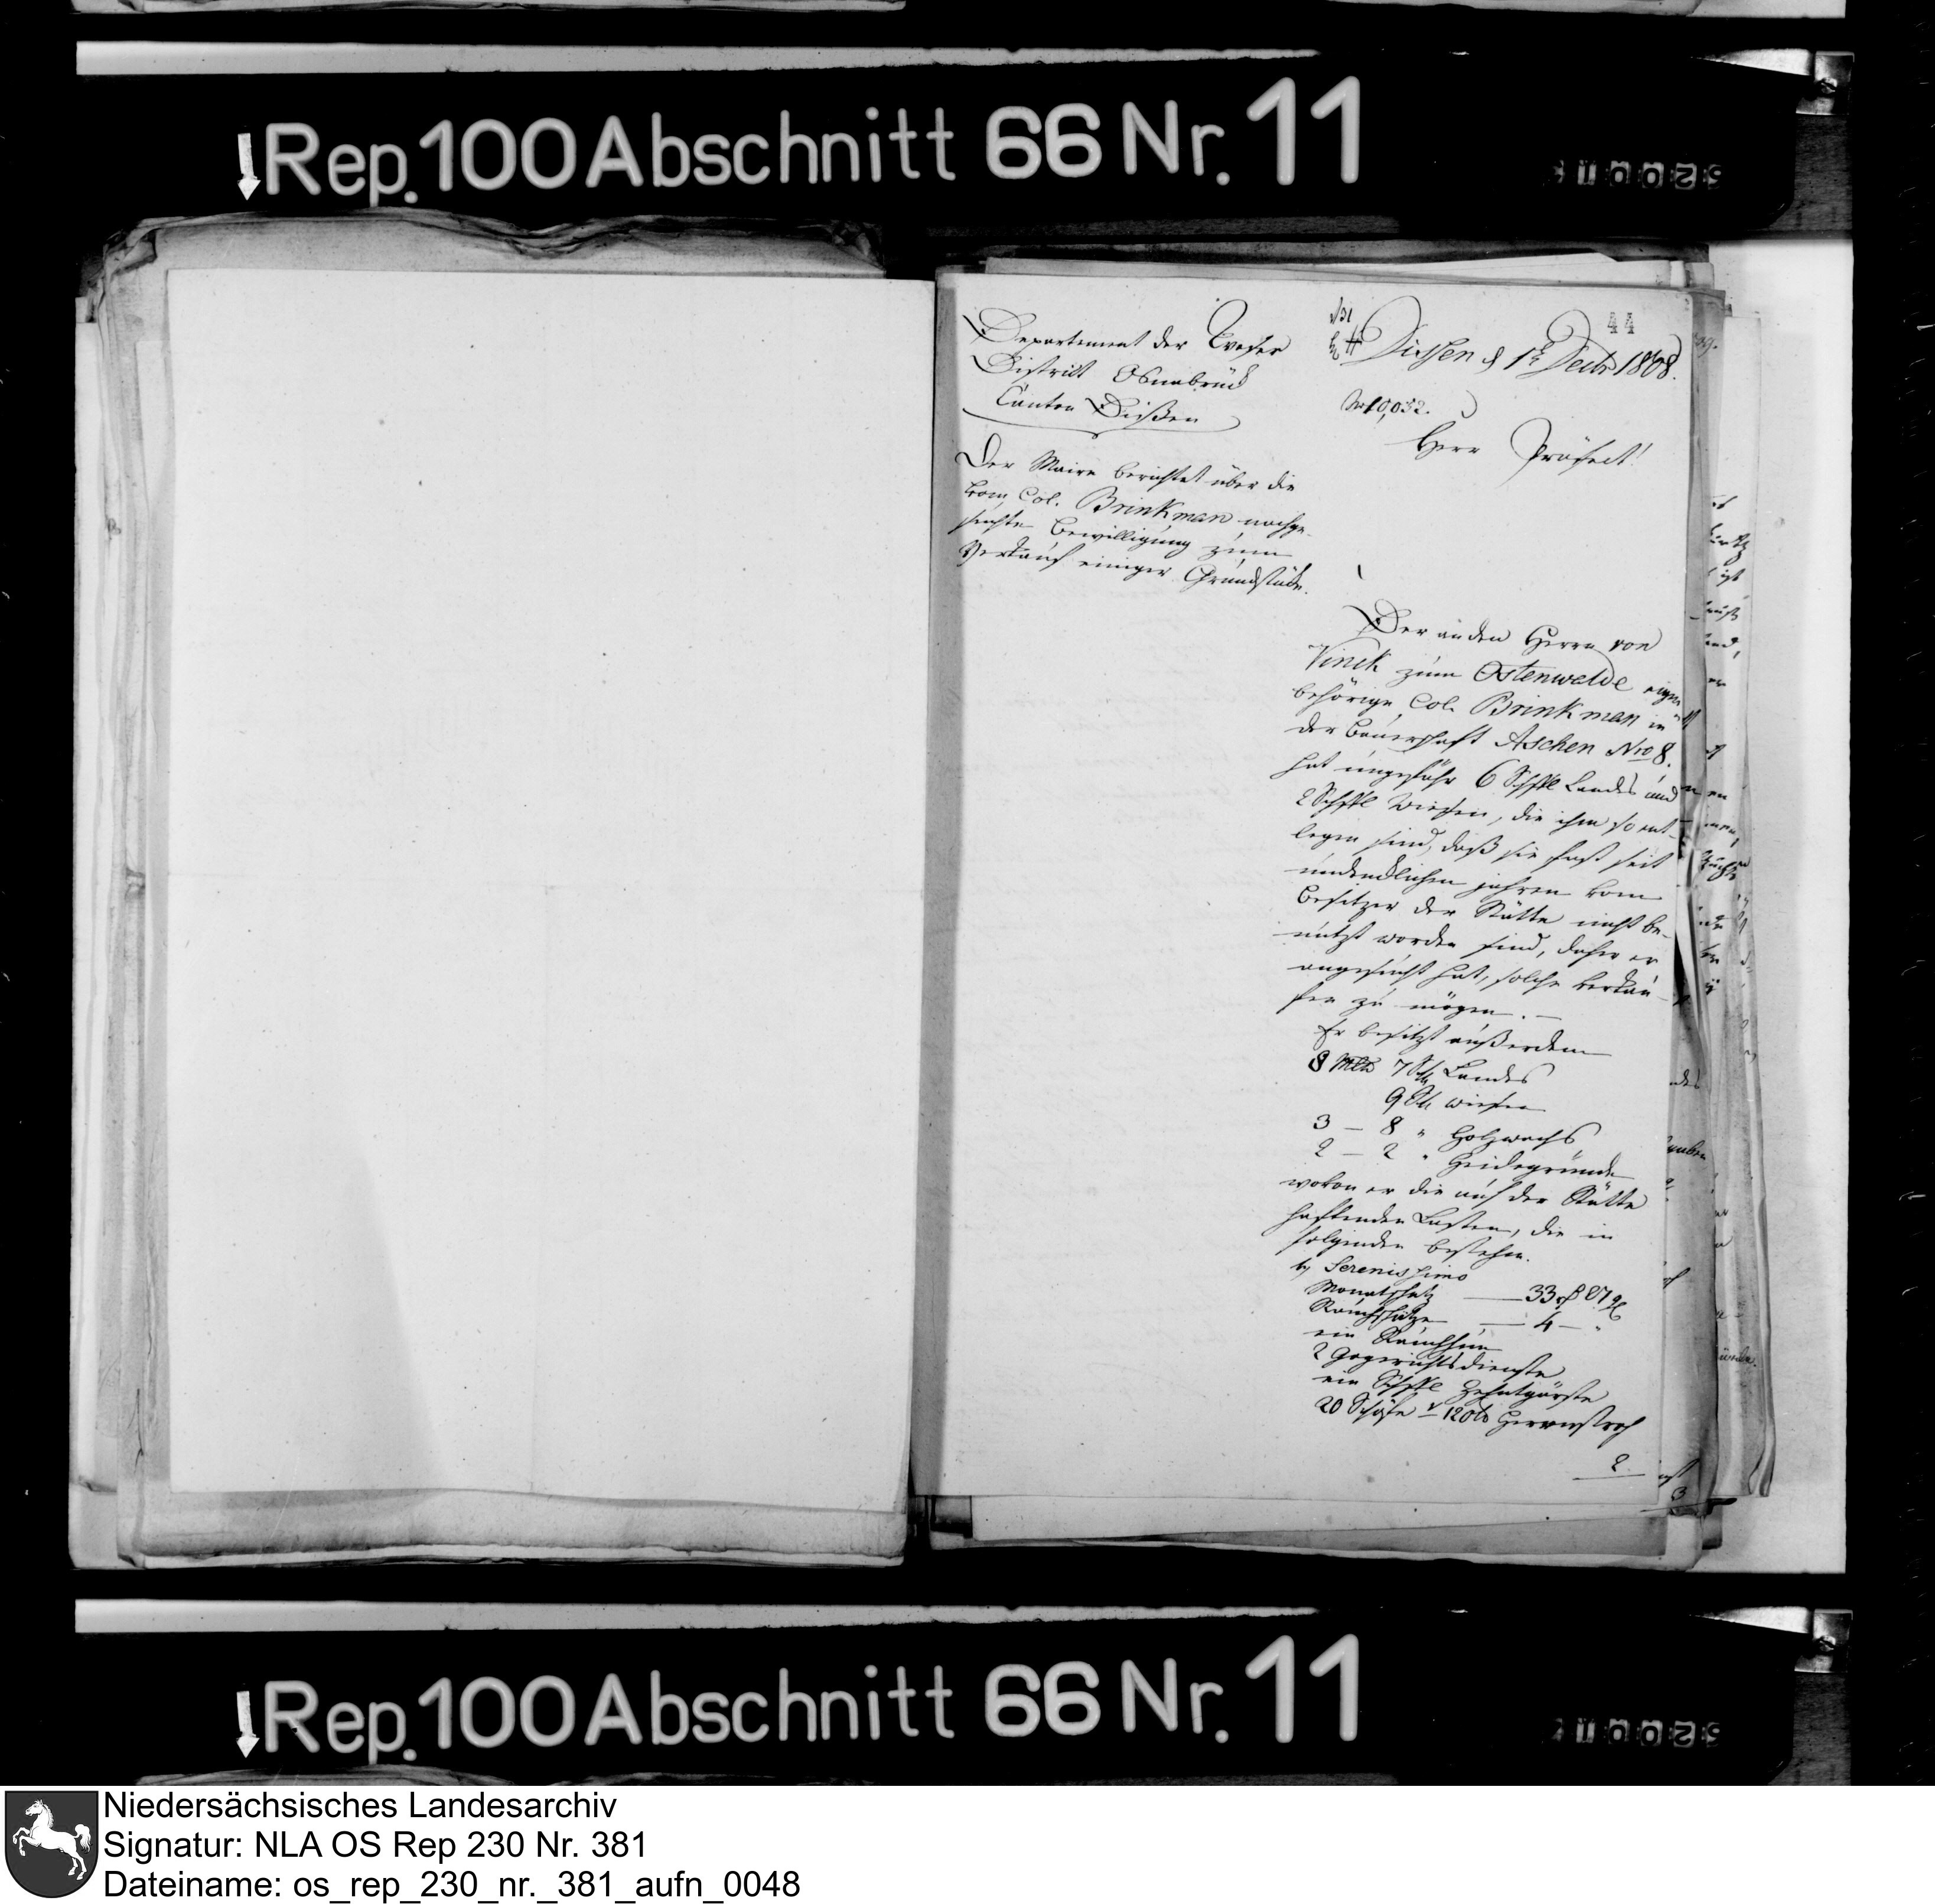 Rep. 100 Abschnitt 66 Nr. 11
44
Departement der Weser
District Osnabrück
Canton Dißen
Dissen d 1t Decbr 1808.
No 10,032.
Herr Präfect!
Der Maire berichtet über die
vom Col. Brinkman nachge-
suchte Bewilligung zum
Verkauf einiger Grundstücke.
Der an den Herrn von
Vinck zum Ostenwalde eigen
behörige Col. Brinkman in
der Bauerschaft Aschen Nro 8.
hat ungefähr 6 Schffl Landes und
2 Schffl Wiesen, die ihm so ent-
legen sind, daß sie fast seit
undencklichen jahren vom
Besitzer der Stätte nicht be-
nutzt worden sind, daher er
angesucht hat, solche verkau-
fen zu mögen. —
Er besitzt außerdem
8 Mltr 7 Schl Landes
9 Schl wiesen
3 — 8 " Holzwachs
2 — 2 " Heidegründe
wovon er die auf der Stätte
haftenden Lasten, die in
folgenden bestehen.
Serenissimo
Monatschatz — 33 27
Rauchschatz — 4 — "
ein Rauchhun
2 Gogerichtsdienste
ein Schffl Zehntgärste
20 Schöfe Herrenstroh
2
Rep. 100 Abschnitt 66 Nr. 11
Niedersächsisches Landesarchiv
Signatur: NLA OS Rep 230 Nr. 381
Dateiname: os_rep_230_nr._381_aufn_0048